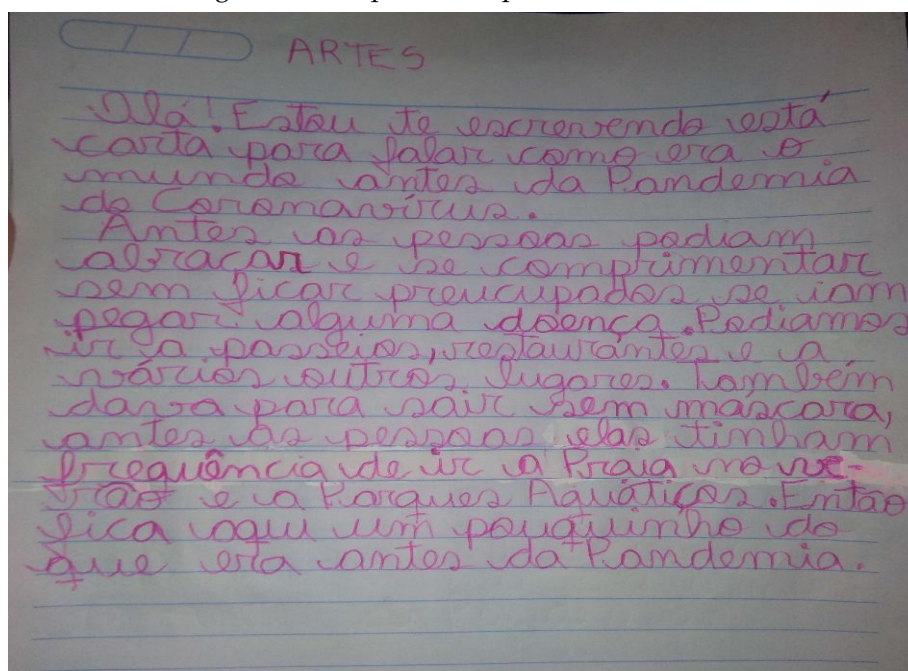 ARTES
Olá! Estou te escrevendo está
carta para falar como era o
mundo antes da Pandemia
do Coronavírus.
Antes as pessoas podiam
abraçar e se comprimentar
sem ficar preucupados se iam
pegar alguma doença. Podiamos
ir a passeios, restaurantes e a
vários outros lugares. Também
dava para sair sem máscara,
antes as pessoas elas tinham
frequência de ir a Praia no ve-
rão e a Parques Aquáticos. Então
fica aqui um pouquinho do
que era antes da Pandemia.